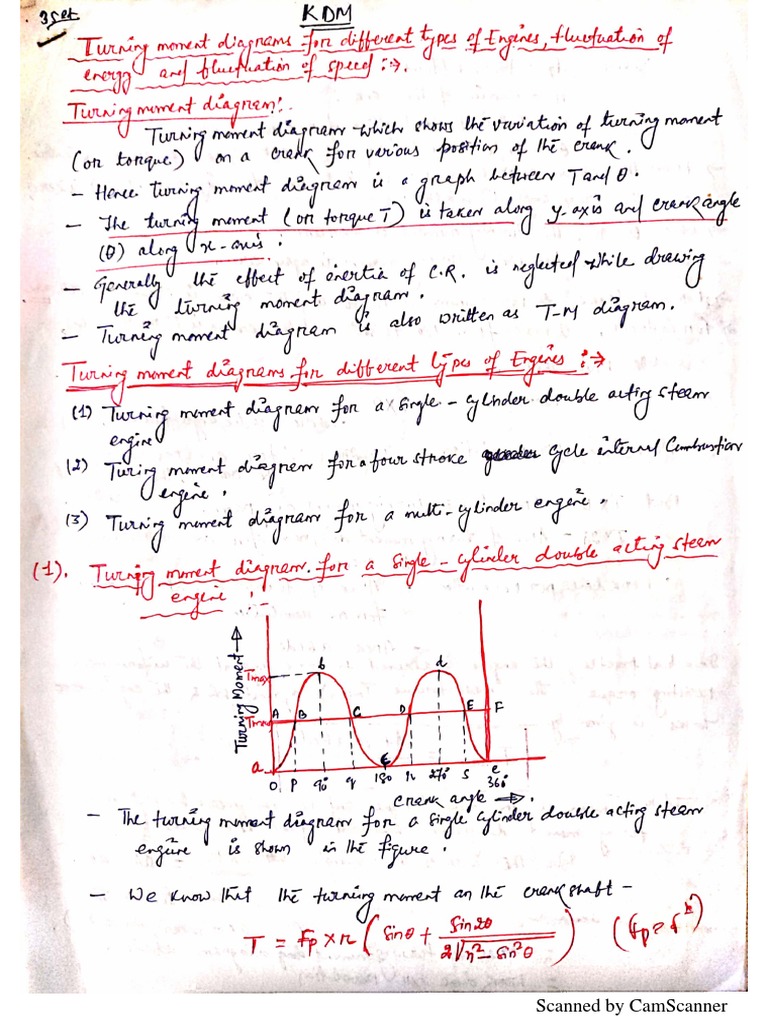 3 Set
KDM
Turning moment diagrams for different types of Engines, fluctuation of
energy and fluctuation of speed :→.
Turning moment diagram:.
Turning moment diagram which shows the variation of turning moment
(or torque) on a crank for various position of the crank.
- Hence turning moment diagram is a graph between T and θ.
- The turning moment (or torque T) is taken along y-axis and crank angle
(θ) along x-axis.
- Generally the effect of inertia of C.R. is neglected while drawing
the turning moment diagram.
- Turning moment diagram is also written as T-M diagram.
Turning moment diagrams for different types of Engines :→
(1) Turning moment diagram for a single-cylinder double acting steam
engine
(2) Turing moment diagrem for a four stroke cycle internal Combustion
engine.
(3) Turning moment diagram for a multi-cylinder engine.
(1). Turning moment diagram for a single-cylinder double acting steam
engine.
Turning Moment →
b d
Tmax
A B C D E F
Tmean
a
0 P 90° q 180 r 270° S 360°
e
crank angle →.
- The turning moment diagram for a single cylinder double acting steam
engine is shown in the figure.
- We know that the turning moment on the crankshaft -
T = Fp × r ( sinθ + sin2θ / 2√n² - sin²θ )